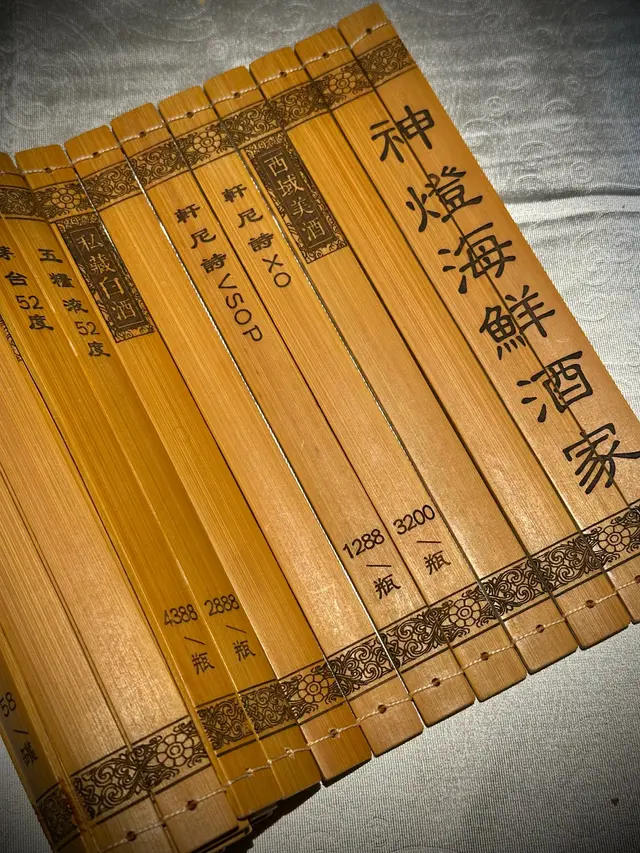 神燈海鮮酒家
西域美酒
軒尼詩XO 3200/瓶
軒尼詩VSOP 1288/瓶
私藏白酒
五糧液52度 2888/瓶
茅台52度 4388/瓶
58/罐